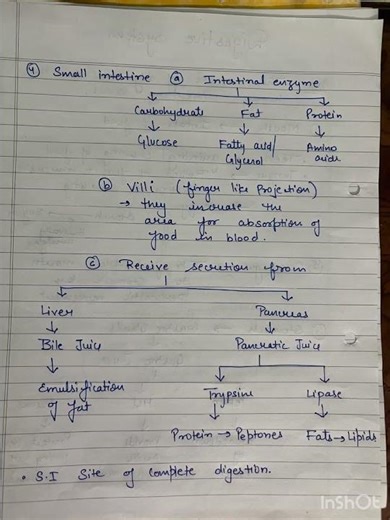 ④ Small intestine ⓐ Intestinal enzyme
Carbohydrate Fat Protein
Glucose Fatty acid/ Amino
Glycerol acids
ⓑ Villi (finger like Projection)
→ they increase the
area for absorption of
food in blood.
ⓒ Receive secretion from
Liver Pancreas
Bile Juice Pancreatic Juice
Emulsification Trypsine Lipase
of fat
Protein → Peptones Fats → Lipids
• S.I Site of complete digestion.
InShOt